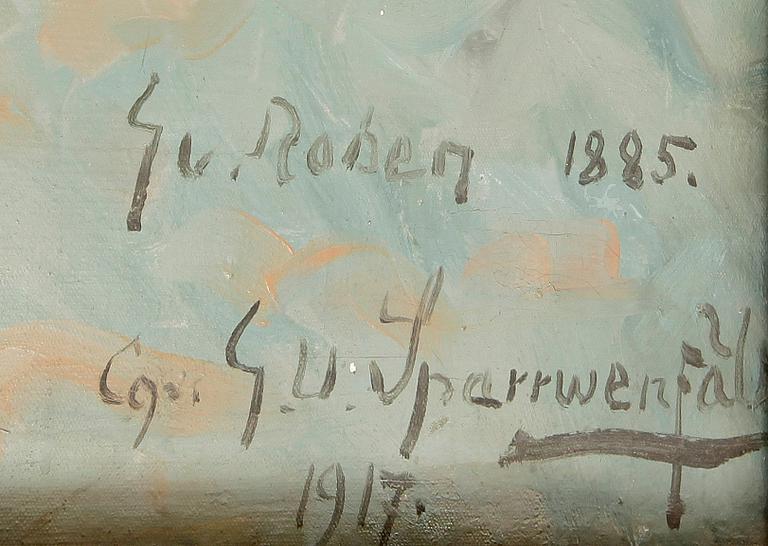 G v. Rosen 1885.
Cop. G. V. Sparrwenfäl
1917.